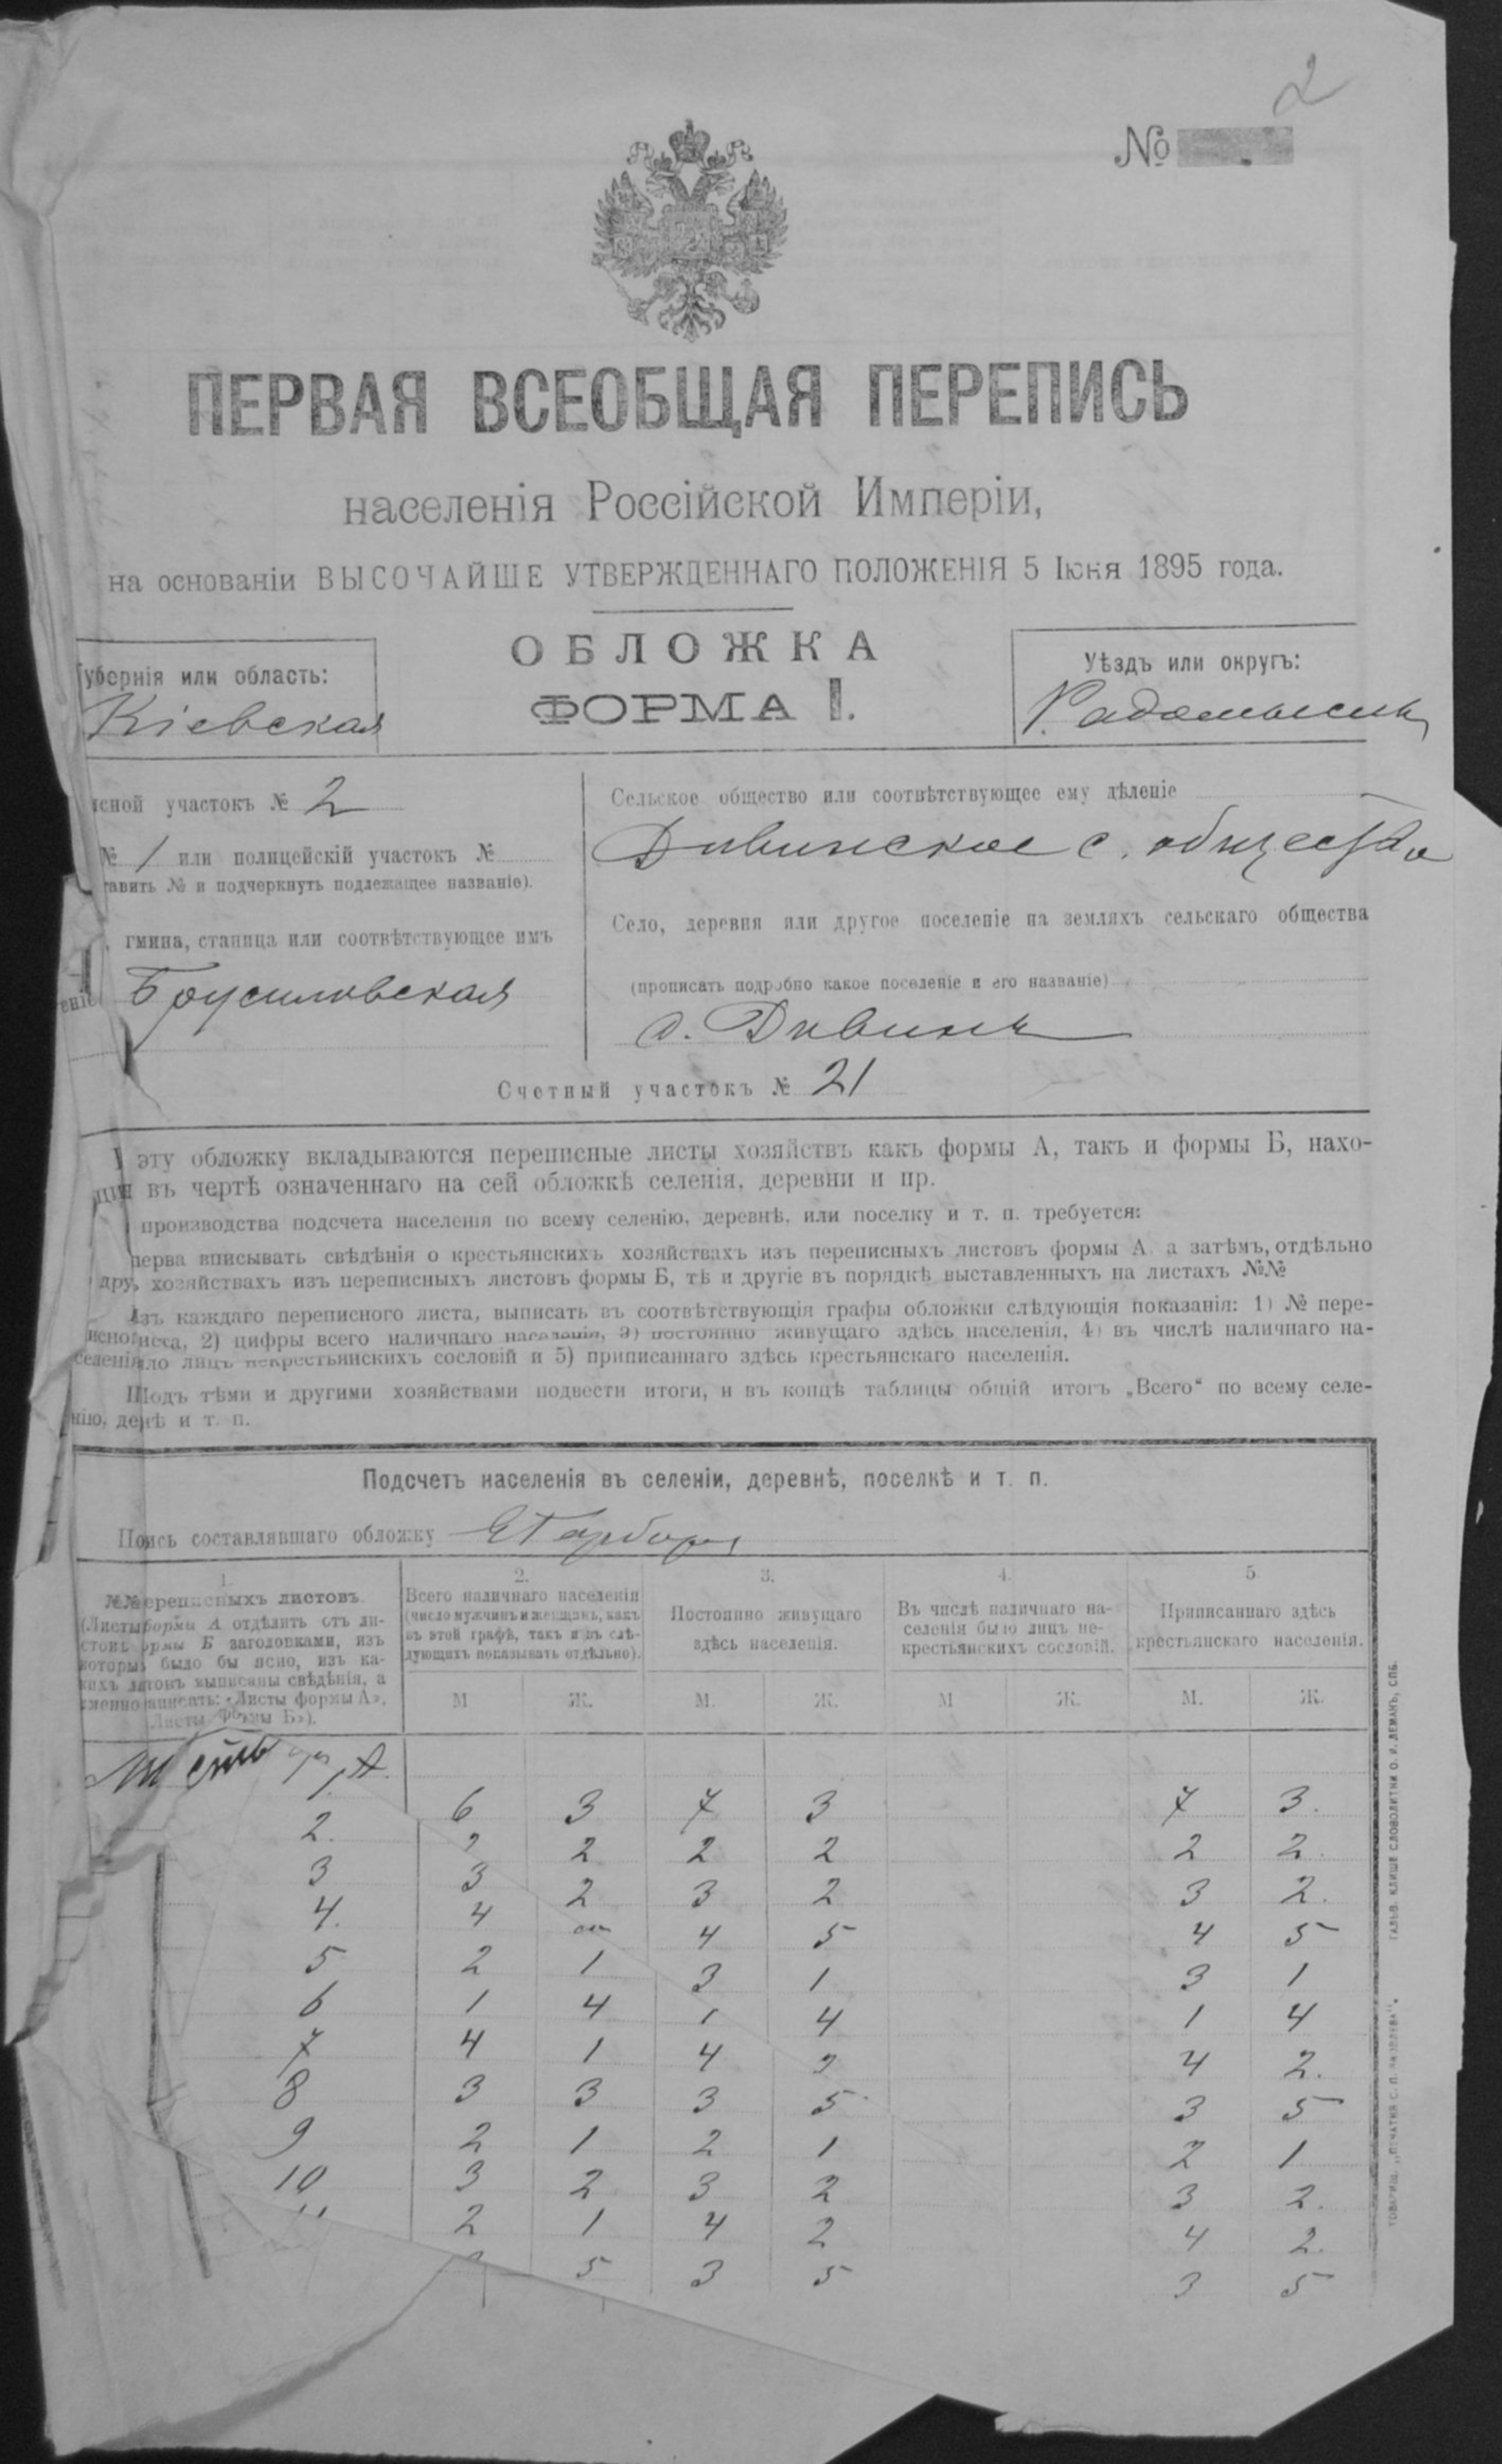 2
№
ПЕРВАЯ ВСЕОБЩАЯ ПЕРЕПИСЬ
населенія Россійской Имперіи,
на основаніи ВЫСОЧАЙШЕ УТВЕРЖДЕННАГО ПОЛОЖЕНІЯ 5 Іюня 1895 года.
ОБЛОЖКА
ФОРМА I.
убернія или область:
Кіевская
Уѣздъ или округъ:
Радомысль
исной участокъ № 2
№ 1 или полицейскій участокъ №
тавить № и подчеркнуть подлежащее названіе).
гмина, станица или соотвѣтствующее имъ
еніе Брусиловская
Сельское общество или соотвѣтствующее ему дѣленіе
Дивинское с. общество
Село, деревня или другое поселеніе на земляхъ сельскаго общества
(прописать подробно какое поселеніе и его названіе)
с. Дивинъ
Счетный участокъ № 21
эту обложку вкладываются переписные листы хозяйствъ какъ формы А, такъ и формы Б, нахо-
щія въ чертѣ означеннаго на сей обложкѣ селенія, деревни и пр.
производства подсчета населенія по всему селенію, деревнѣ, или поселку и т. п. требуется:
перва вписывать свѣдѣнія о крестьянскихъ хозяйствахъ изъ переписныхъ листовъ формы А а затѣмъ, отдѣльно
дру, хозяйствахъ изъ переписныхъ листовъ формы Б, тѣ и другіе въ порядкѣ выставленныхъ на листахъ №№
Изъ каждаго переписного листа, выписать въ соотвѣтствующія графы обложки слѣдующія показанія: 1) № пере-
писно 2) цифры всего наличнаго населенія, 3) постоянно живущаго здѣсь населенія, 4) въ числѣ наличнаго на-
селенія ло лицъ некрестьянскихъ сословій и 5) приписаннаго здѣсь крестьянскаго населенія.
Подъ тѣми и другими хозяйствами подвести итоги, и въ концѣ таблицы общій итогъ „Всего“ по всему селе-
нію, де нѣ и т. п.
Подсчетъ населенія въ селеніи, деревнѣ, поселкѣ и т. п.
По ись составлявшаго обложку
1. 2. 3. 4. 5
№№ ереписныхъ листовъ
(Листы формы А отдѣлить отъ ли-
стовъ ормы Б заголовками, изъ
которы было бы ясно, изъ ка-
кихъ л товъ выписаны свѣдѣнія, а
именно написать: «Листы формы А»,
Листы Формы Б»).
Всего наличнаго населенія
(число мужчинъ и женщинъ, какъ
въ этой графѣ, такъ и въ слѣ-
дующихъ показывать отдѣльно).
Постоянно живущаго
здѣсь населенія.
Въ числѣ наличнаго на-
селенія было лицъ не-
крестьянскихъ сословій.
Приписаннаго здѣсь
крестьянскаго населенія.
М Ж. М. Ж. М Ж. М. Ж.
А.
1. 6 3 7 3 7 3.
2. 2 2 2 2 2 2.
3 3 2 3 2 3 2.
4. 4 4 5 4 5
5 2 1 3 1 3 1
6 1 4 1 4 1 4
7 4 1 4 2 4 2.
8 3 3 3 5 3 5
9 2 1 2 1 2 1
10 3 2 3 2 3 2.
2 1 4 2 4 2.
5 3 5 3 5
ТОВАРИЩ. „ПЕЧАТНЯ С. П. ЯКОВЛЕВА“. ГАЛЬВ. КЛИШЕ СЛОВОЛИТНИ О. И. ЛЕМАНЪ, СПБ.